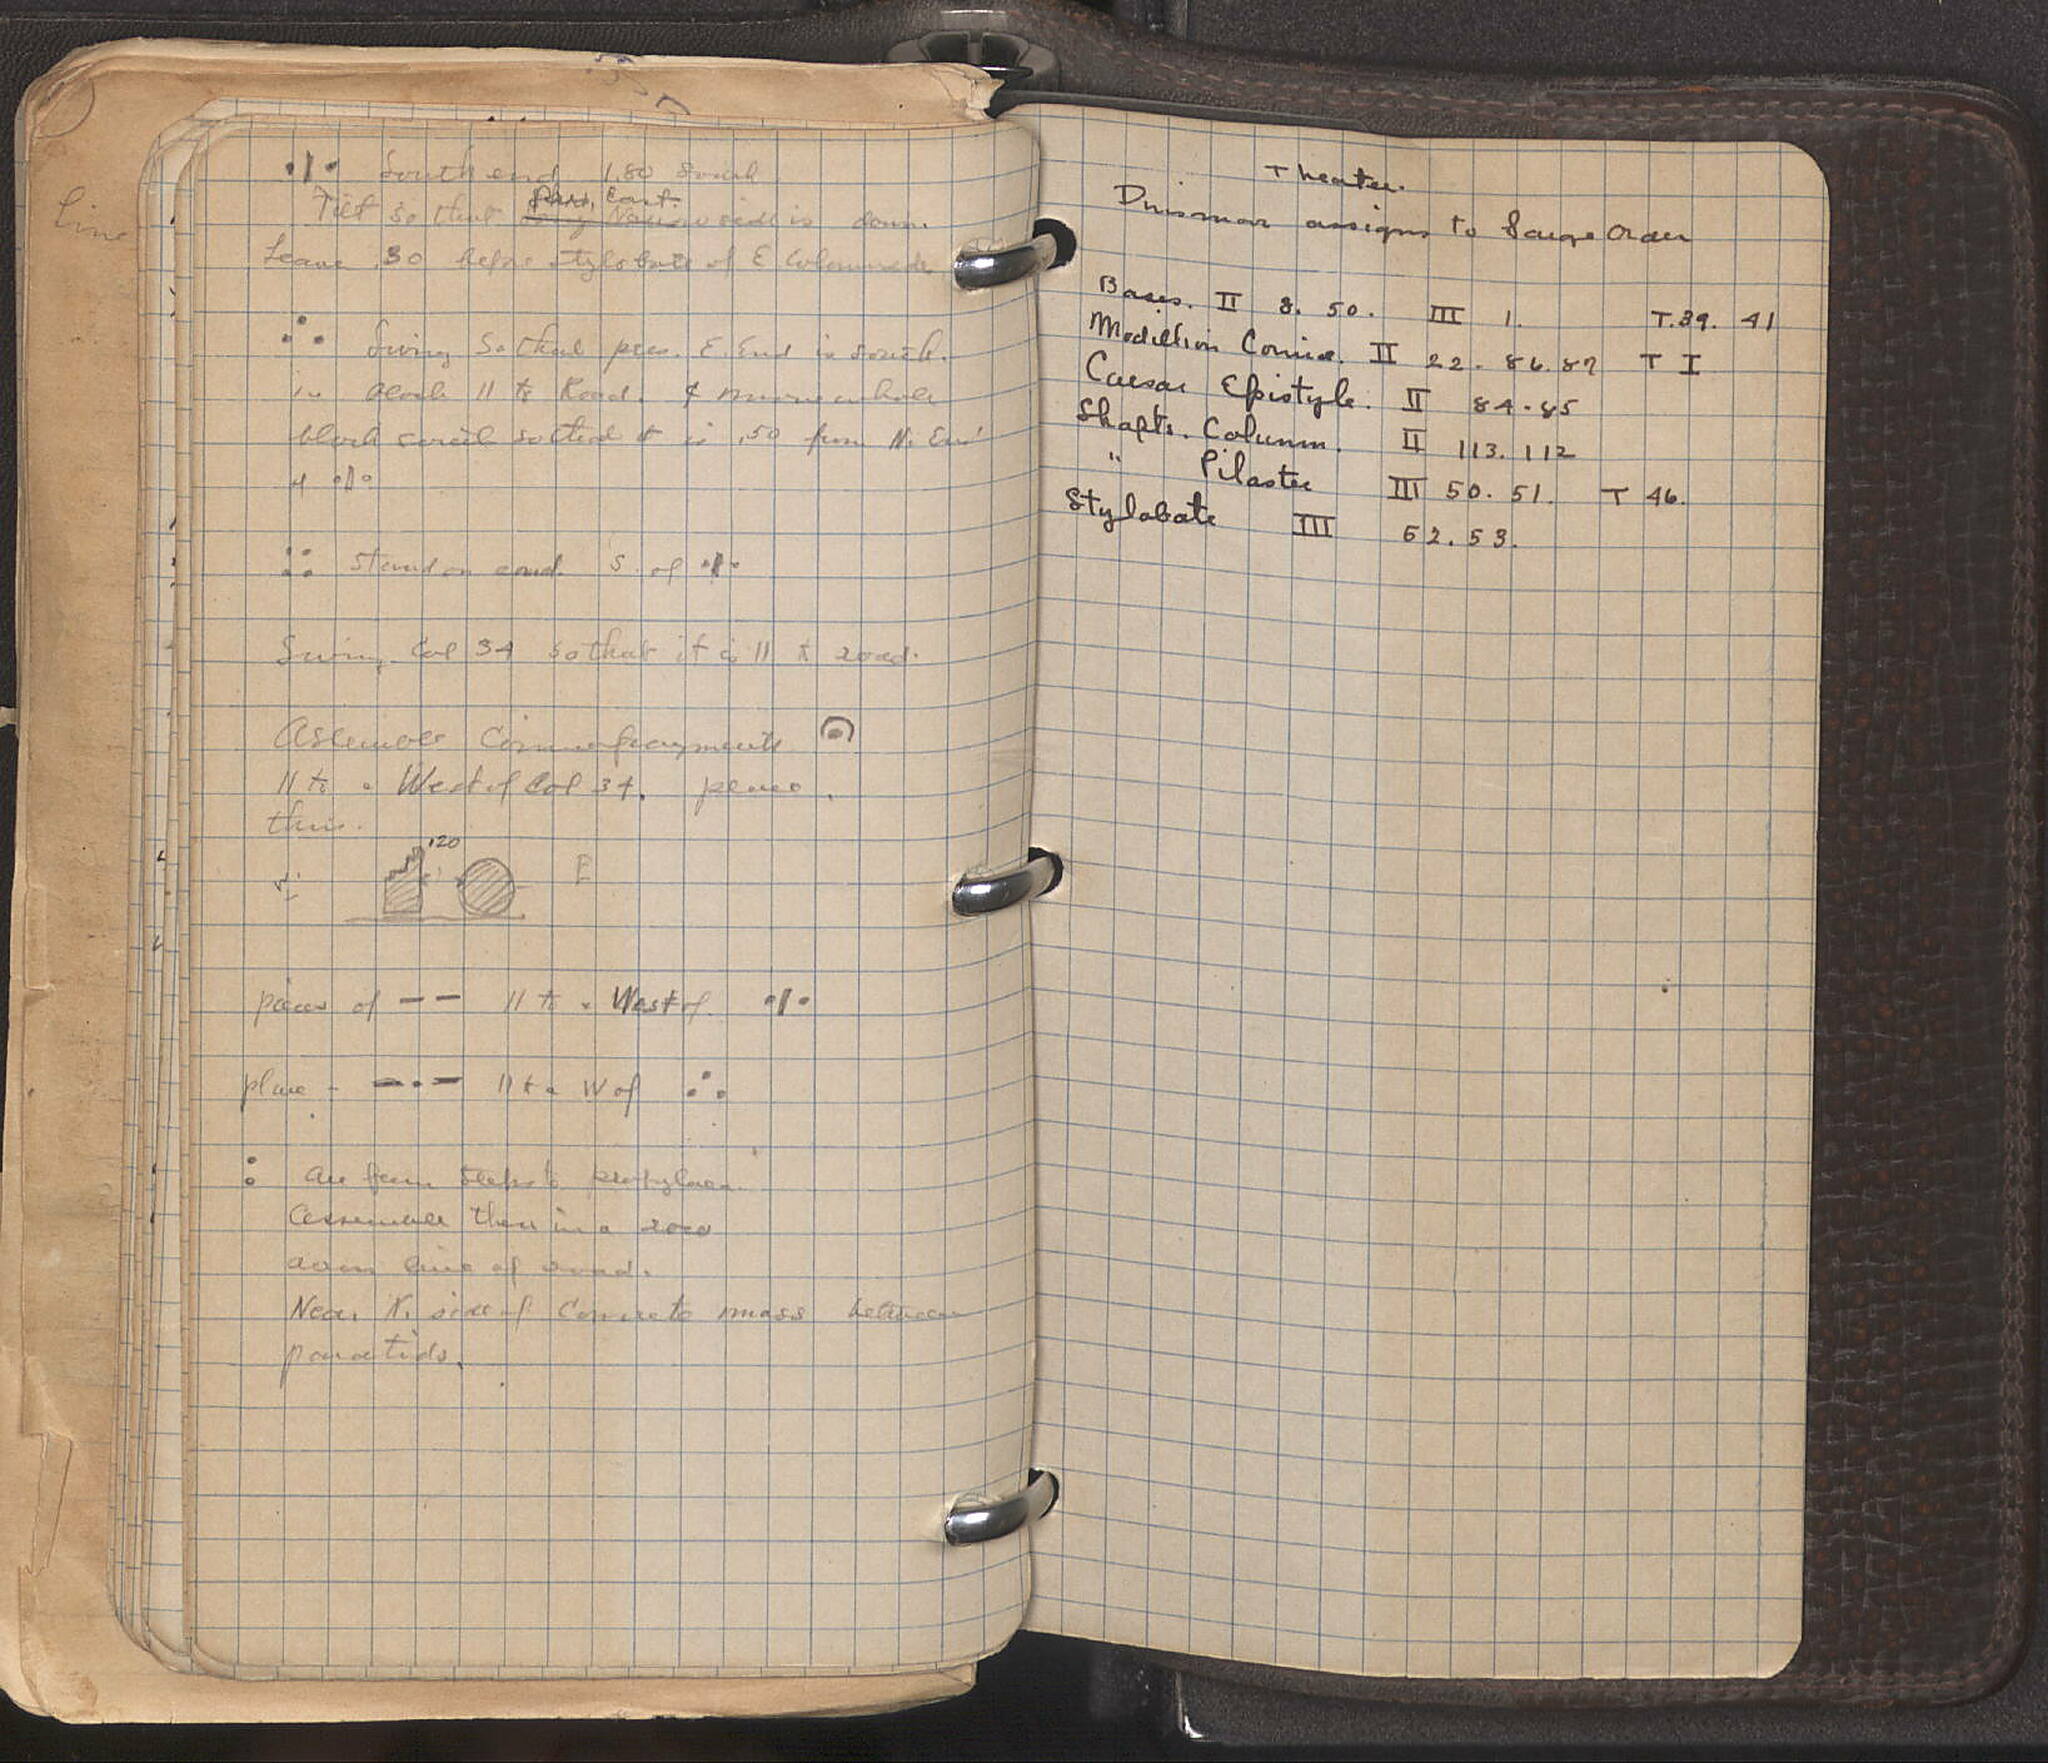 Line
·/· South end 1.80 South.
Pres. East.
Tilt so that Long Narrow side is down.
Leave .30 before stylobate of E Colonnade.
∴ Swing so that pres. E. End is south.
in block || to Road. & move whole
block south so that it is .50 from N. End
of ·/·
:: Stand on end. S. of ·/·
Swing Col 34 so that it is || to road.
Assemble Cornice fragments
|| to & West of Col 34. place
thus.
.20
E
pieces of – – || to & West of. ·/·
place – –·– || to & W of ∴
: are from steps to propylaea.
Assemble them in a row
down line of road.
Near N. side of Concrete mass between
parotids.
Theater.
Dinsmoor assigns to Large Order
Bases. II 8. 50. III 1. T.39. 41
Modillion Cornice. II 22. 86. 87 T I
Caesar Epistyle. II 84. 85
Shafts. Column. II 113. 112
" Pilaster III 50. 51. T 46.
Stylobate III 52. 53.